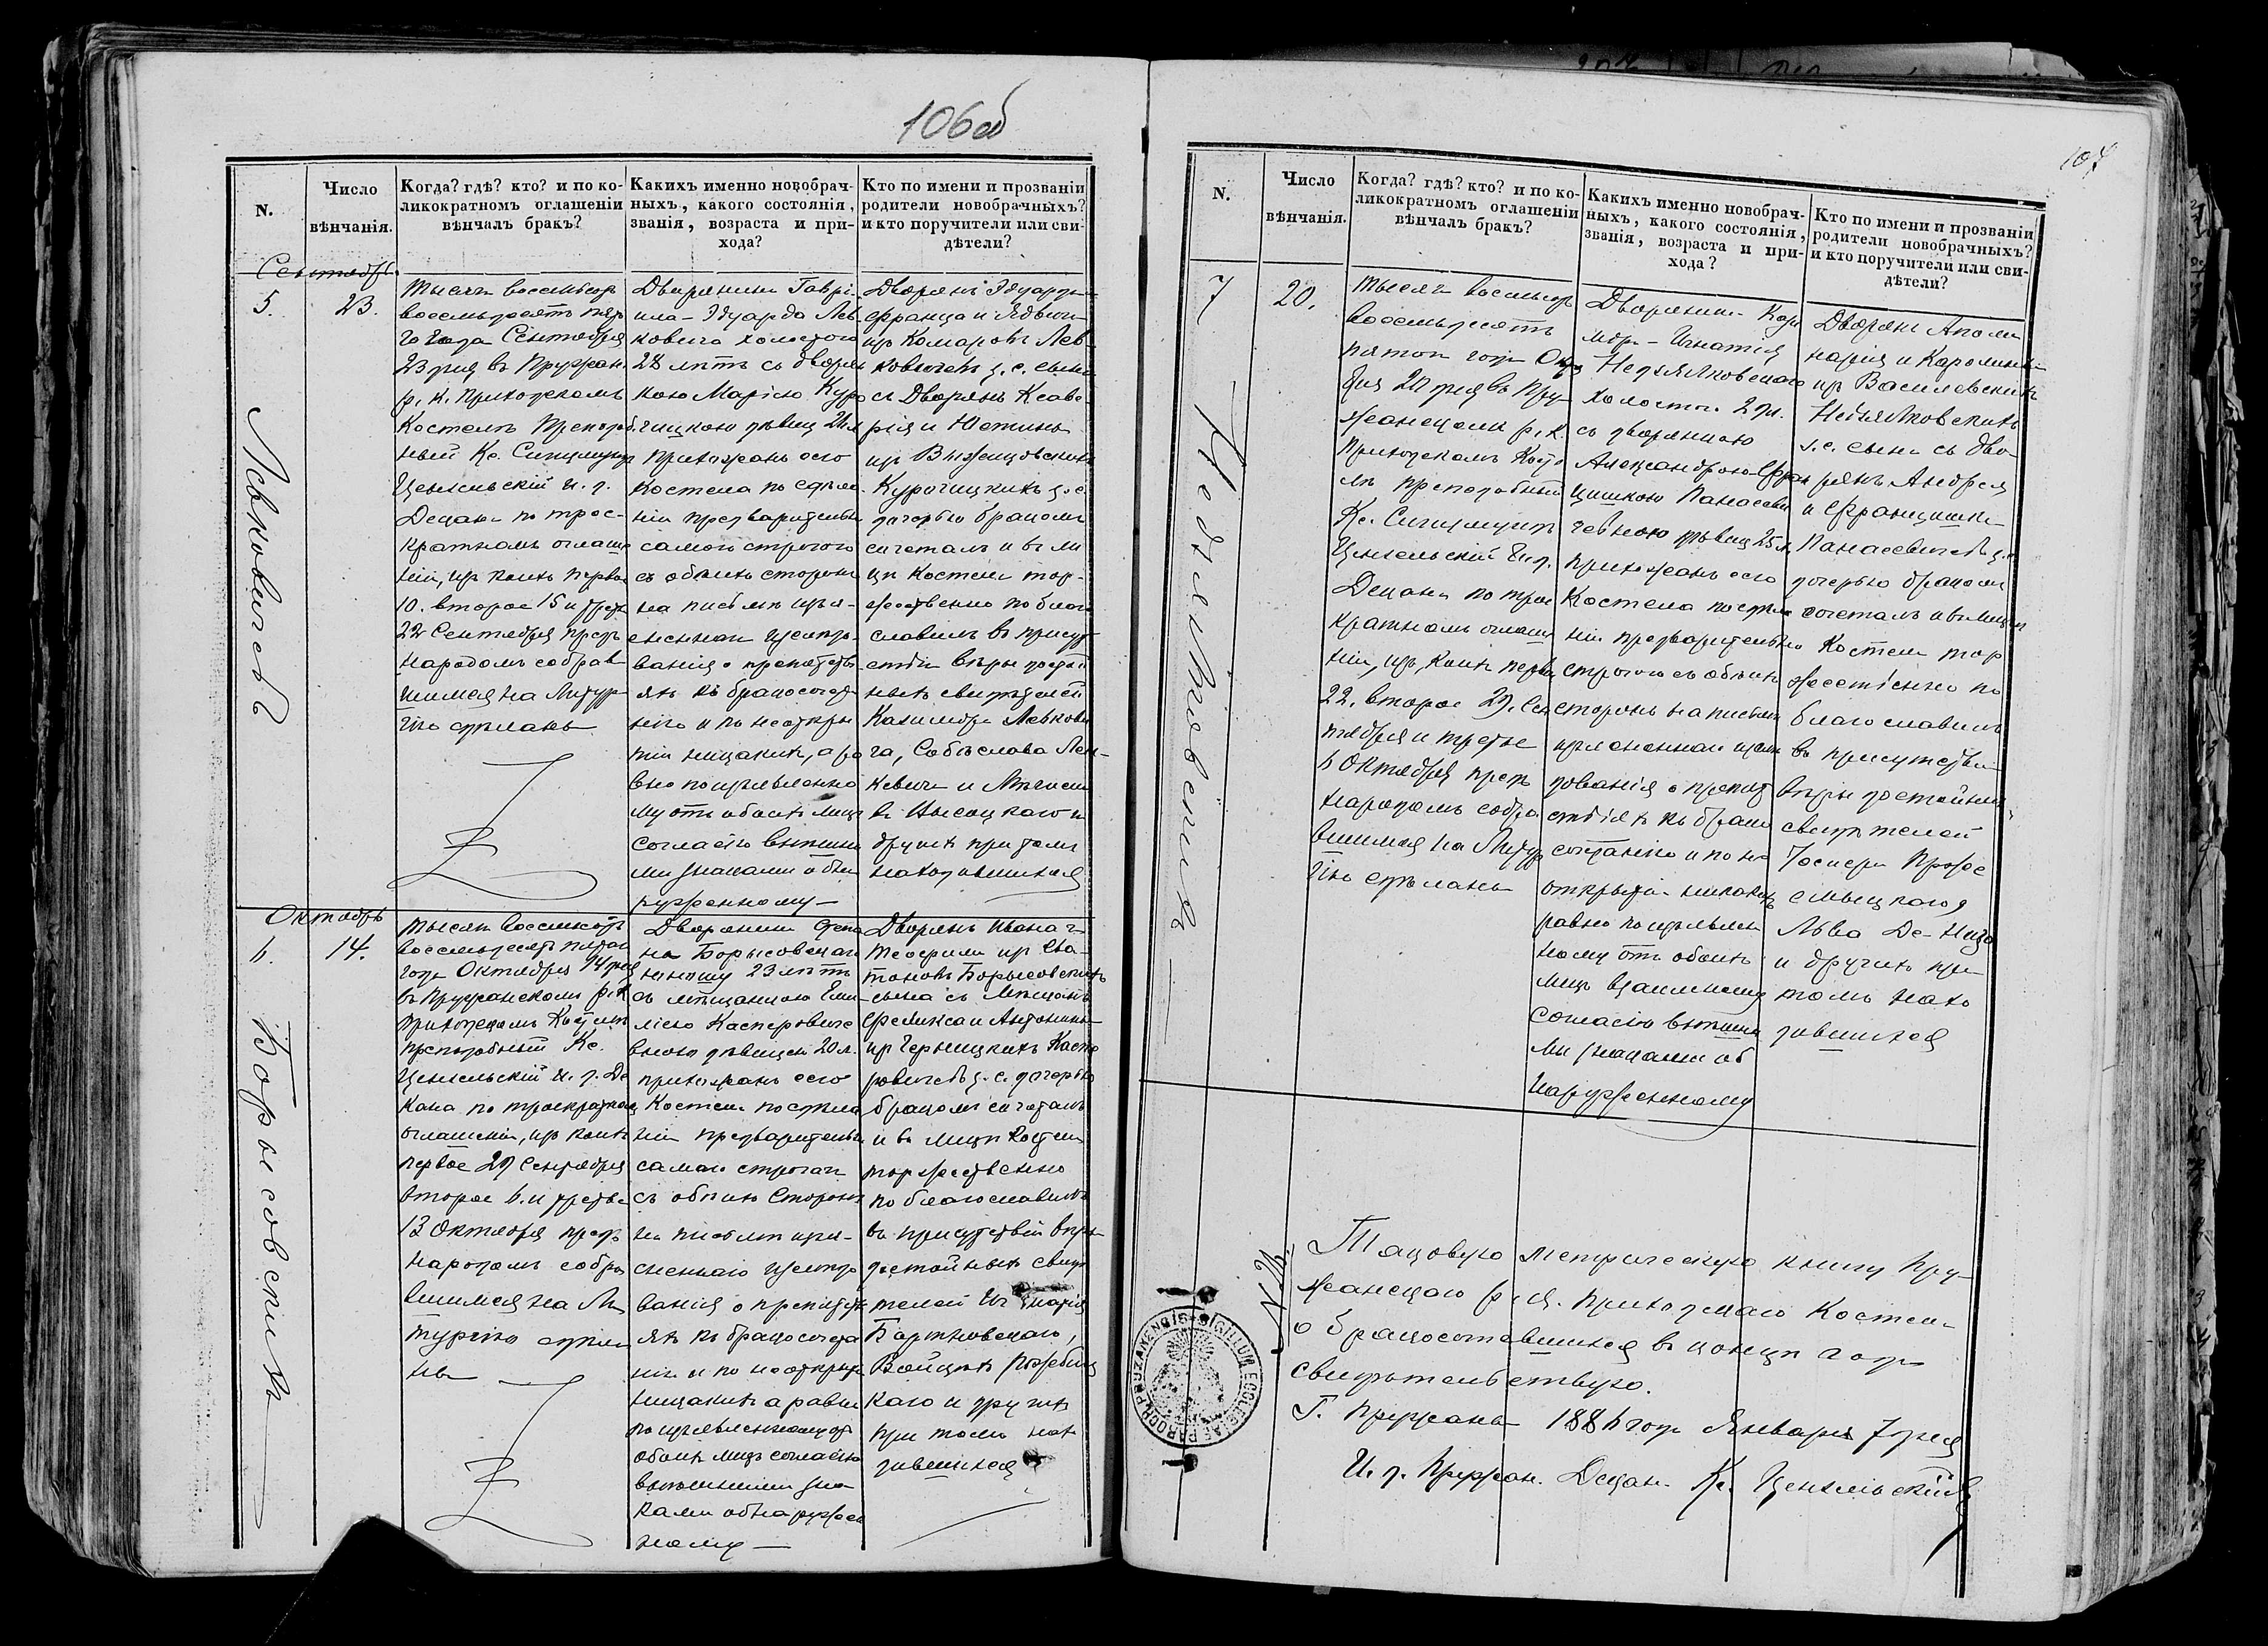 106об
N.
Число
вѣнчанія.
Когда? гдѣ? кто? и по ко-
ликократномъ оглашеніи
вѣнчалъ бракъ?
Какихъ именно новобрач-
ныхъ, какого состоянія,
званія, возраста и при-
хода?
Кто по имени и прозванiи
родители новобрачныхъ?
и кто поручители или сви-
дѣтели?
Сентябрь.
5.
23.
Левковичевъ
Тысяча восемьсотъ
восемьдесятъ пят
го года Сентября
23 дня въ Пружан.
р. к. приходскомъ
Костелѣ Преподоб
ный Кс.
Ценкельскій И. д.
Декана по трое-
кратномъ оглаше
ніи, изъ коихъ первое
10. второе 15 и трет
22 Сентября предъ
народомъ собрав
шимся на Литур
гію сдѣланы
Дворянина Гаврі-
ила-Эдуарда Лев-
ковича холостого
28 лѣтъ съ дворян
кою Маріею Куро
чицкою дѣвиц 24 л
прихожанъ сего
Костела по сдѣла
ніи предварительн
самого строгого
съ обѣихъ сторонъ
на письмѣ изъя-
сненнаго изслѣдо-
ванія о препятств
яхъ къ бракосочета
нію и по неоткры
тіи никакихъ, а ра
вно по изъявленно
му отъ обоихъ лицъ
согласію внѣшни
ми знаками обна
руженному —
Дворянъ Эдуарда-
Франца и Ядвиги
изъ Комаровъ Лев-
ковичевъ з. с. сына
съ Дворянъ Ксаве-
рія и Юстины
изъ Выжицовскихъ
Курочицкихъ з. с.
дочерью бракомъ
сочеталъ и въ ли
цѣ Костела тор-
жественно поблаго
славилъ въ присут
ствіи вѣры достой
ныхъ свидѣтелей
Казимира Левкови
ча, Собѣслава Лев-
ковича и
въ Цысецкаго и
другихъ при томъ
находившихся
Октябрь
6.
14.
Борысовскихъ
Тысяча восемьсотъ
восемьдесятъ пятаго
года Октября 14 дня
въ Пружанскомъ р. к.
приходскомъ Костелѣ
преподобный Кс.
Ценкельскій И. д. Де
кана по троекратномъ
оглашеніи, изъ коихъ
первое 29 Сентября
второе 6. и третье
13 Октября предъ
народомъ собра
вшимся на Ли
тургію сдѣла
ны
Дворянина Степа
на Борысовскаго
юношу 23 лѣтъ
съ мѣщанкою Еми
ліею Касперовиче
вною дѣвицею 20 л.
прихожанъ сего
Костела по сдѣла
ніи предварительн
самаго строгаго
съ обѣихъ сторонъ
на письмѣ изъя-
сненнаго изслѣдо
ванія о препятств
яхъ къ бракосочета
нію и по неоткрытіи
никакихъ а равно
по изъявленному отъ
обоихъ лицъ согласію
внѣшними зна-
ками обнаружен
ному —
Дворянъ Ивана и
Теофили изъ
Борысовскихъ
сына съ Мѣщанъ
Феликса и Антонины
изъ Черницкихъ Каспе
ровичевъ з. с. дочерью
бракомъ сочеталъ
и въ лицѣ Костела
торжественно
поблагославилъ
въ присутствіи вѣры
достойныхъ свидѣ
телей Игнатія
Бартновскаго,
Войцеха
каго и другихъ
при томъ нахо
дившихся
107
N.
Число
вѣнчанія.
Когда? гдѣ? кто? и по ко-
ликократномъ оглашеніи
вѣнчалъ бракъ?
Какихъ именно новобрач-
ныхъ, какого состоянія,
званія, возраста и при-
хода?
Кто по имени и прозванiи
родители новобрачныхъ?
и кто поручители или сви-
дѣтели?
7
20.
Недзялковскихъ
Тысяча восемьсотъ
восемьдесятъ
пятого года Октя
бря 20 дня въ Пру-
жанскомъ р. к.
приходскомъ Косте
лѣ преподобный
Кс. Сигизмунтъ
Ценкельскій И. д.
Декана по трое
кратномъ оглаше
ніи, изъ коихъ перв
22. второе 29. Сен
тября и третье
6 Октября предъ
народомъ собра
вшимся на Литур
гію сдѣланы
Дворянина Кази
міра-Игнатія
Недзялковскаго
холостого 29 л.
съ дворянкою
Александрою-Фран
цишкою Панасеви
чевною дѣвиц 25 л.
прихожанъ сего
Костела по сдѣла
ніи предварительно
строгого съ обѣихъ
сторонъ на письмѣ
изъясненнаго изслѣ
дованія о препят
ствіяхъ къ брако
сочетанію и по не
открытіи никакихъ
равно по изъявлен
ному отъ обоихъ
лицъ взаимному
согласію внѣшни
ми знаками об
наруженному
Дворянъ Аполи
нарія и Каролины
изъ Василевскихъ
Недзялковскихъ
з. с. сына съ Дво
рянъ Андрея
и Францишки
Панасевичевъ з. с.
дочерью бракомъ
сочеталъ и въ лицѣ
Костела тор
жественно по
благославилъ
въ присутствіи
вѣры достойныхъ
свидѣтелей
Льва
и другихъ при
томъ нахо
дившихся
Таковую метрическую книгу Пру-
жанскаго р. к. приходскаго Костела
о бракосочетавшихся въ концѣ года
свидѣтельствую.
Г. Пружана 1886 года Января 7 дня
И. д. Пружан. Декан. Кс. Ценкельскій
SIGILLUM ECCLESIAE PAROCH. PRUZANENSIS